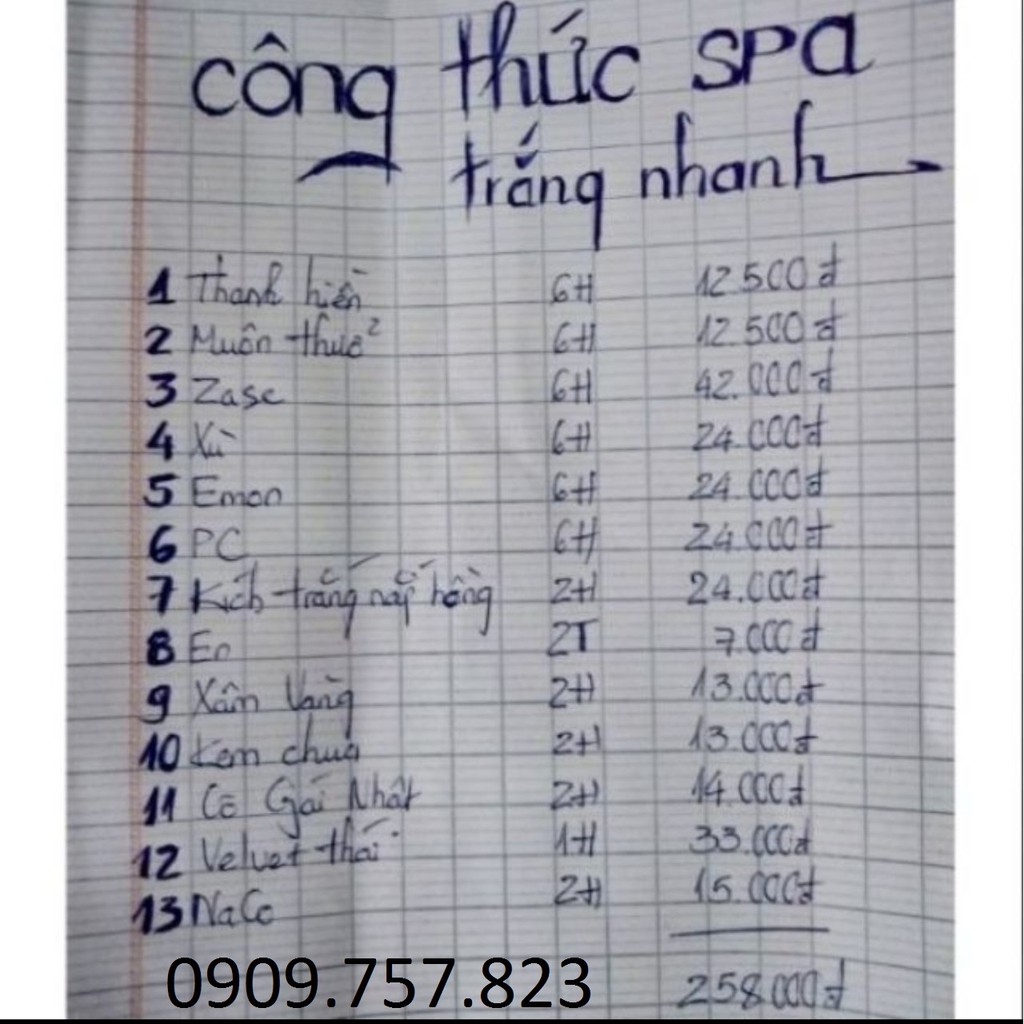 công thức SPA
trắng nhanh
1 Thanh hiền 6H 12.500đ
2 Muôn thuở² 6H 12.500đ
3 Zase 6H 42.000đ
4 Xù 6H 24.000đ
5 Emon 6H 24.000đ
6 PC 6H 24.000đ
7 Kích trắng nắp hồng 2H 24.000đ
8 En 2T 7.000đ
9 Xâm Vàng 2H 13.000đ
10 Kem chua 2H 13.000đ
11 Cô Gái Nhật 2H 14.000đ
12 Velvet thái 1H 33.000đ
13 NaCo 2H 15.000đ
0909.757.823 258.000đ